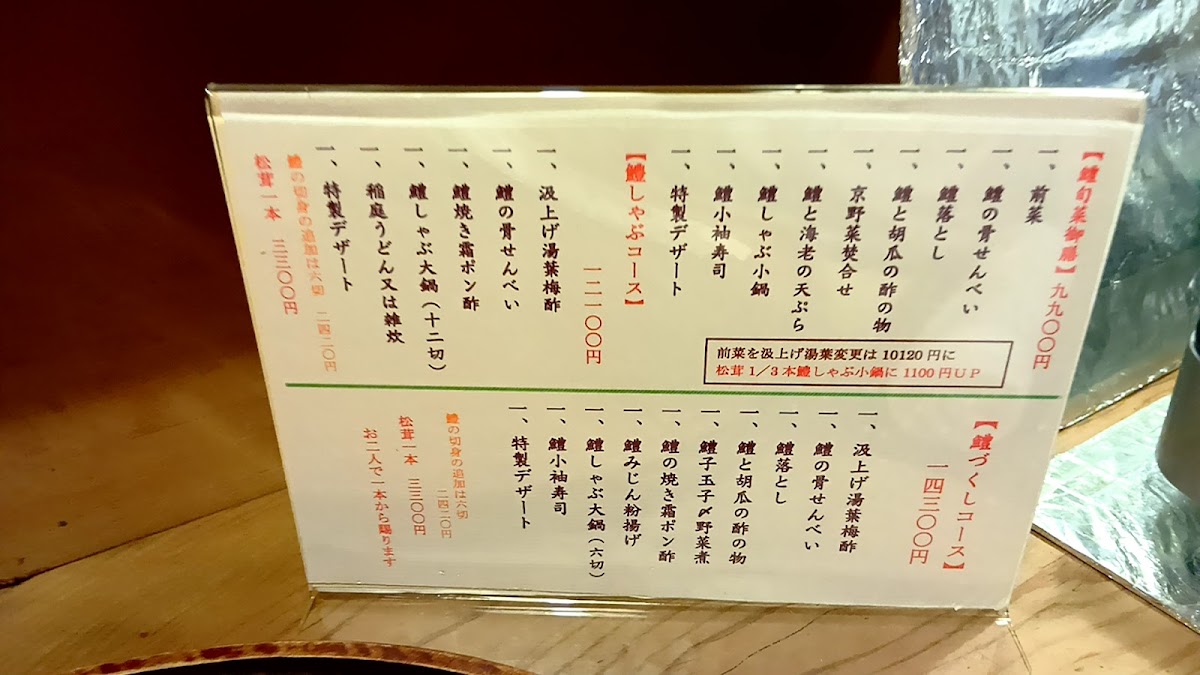 【鱧旬菜御膳】九九〇〇円
一、前菜
一、鱧の骨せんべい
一、鱧落とし
一、鱧と胡瓜の酢の物
一、京野菜焚合せ
一、鱧と海老の天ぷら
一、鱧しゃぶ小鍋
一、鱧小袖寿司
一、特製デザート
前菜を汲上げ湯葉変更は10120円に
松茸1/3本鱧しゃぶ小鍋に1100円UP
【鱧しゃぶコース】
一二一〇〇円
一、汲上げ湯葉梅酢
一、鱧の骨せんべい
一、鱧焼き霜ポン酢
一、鱧しゃぶ大鍋（十二切）
一、稲庭うどん又は雑炊
一、特製デザート
鱧の切身の追加は六切 二四二〇円
松茸一本 三三〇〇円
【鱧づくしコース】
一四三〇〇円
一、汲上げ湯葉梅酢
一、鱧の骨せんべい
一、鱧落とし
一、鱧と胡瓜の酢の物
一、鱧子玉子〆野菜煮
一、鱧の焼き霜ポン酢
一、鱧みじん粉揚げ
一、鱧しゃぶ大鍋（六切）
一、鱧小袖寿司
一、特製デザート
鱧の切身の追加は六切
二四二〇円
松茸一本 三三〇〇円
お二人で一本から賜ります